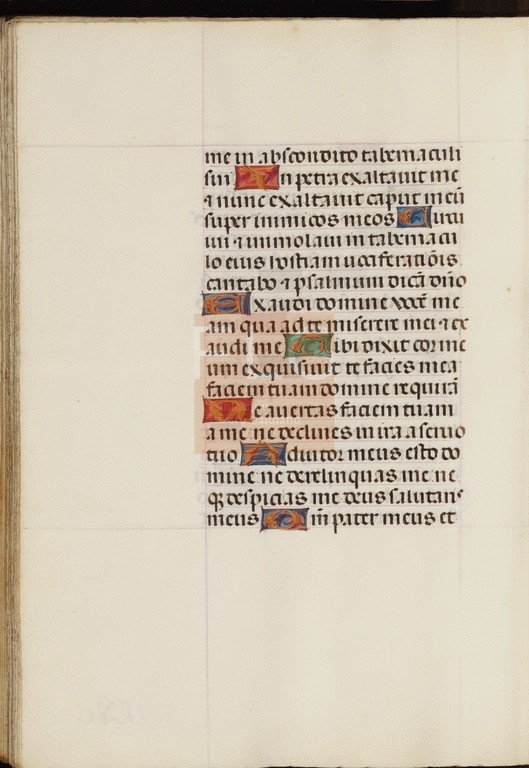 me in abscondito tabernaculi
sui In petra exaltavit me
⁊ nunc exaltavit caput meũ
super inimicos meos Circu
ivi ⁊ immolavi in tabernacu
lo eius hostiam vociferatiõis
cantabo ⁊ psalmum dicã dño
Exaudi domine vocẽ me
am qua ad te miserere mei ⁊ ex
audi me Tibi dixit cor me
um exquisivit te facies mea
faciem tuam domine requirã
Ne avertas faciem tuam
a me ne declines in ira a servo
tuo Adiutor meus esto do
mine ne derelinquas me ne
q̃ despicias me deus salutaris
meus Qm̃ pater meus et